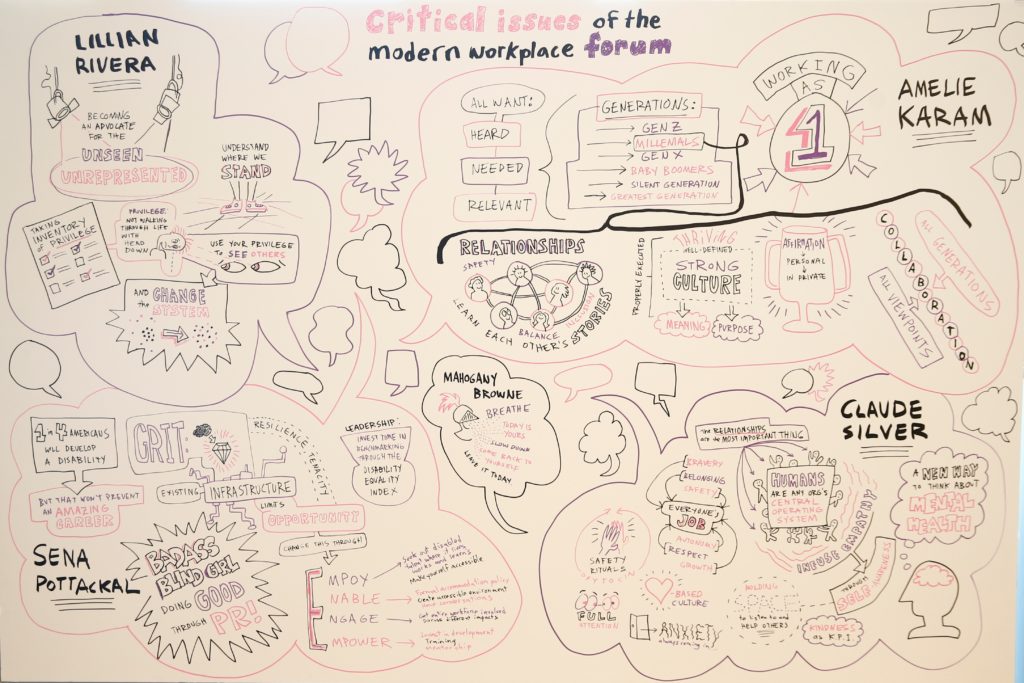 Critical issues of the
modern workplace forum
LILLIAN
RIVERA
BECOMING
AN ADVOCATE
FOR THE
UNSEEN
UNREPRESENTED
UNDERSTAND
WHERE WE
STAND
TAKING
INVENTORY
OF PRIVILEGE
PRIVILEGE:
NOT WALKING
THROUGH LIFE
WITH
HEAD
DOWN
USE YOUR PRIVILEGE
TO SEE OTHERS
AND
the
CHANGE
SYSTEM
ALL WANT:
HEARD
NEEDED
RELEVANT
GENERATIONS:
GEN Z
MILLENIALS
GEN X
BABY BOOMERS
SILENT GENERATION
GREATEST GENERATION
WORKING
AS
1
AMELIE
KARAM
RELATIONSHIPS
SAFETY
BALANCE
INCLUSION
LEARN EACH OTHER'S STORIES
PROPERLY EXECUTED
THRIVING
WELL-DEFINED
STRONG
CULTURE
MEANING
PURPOSE
AFFIRMATION
PERSONAL
IN PRIVATE
ALL GENERATIONS
COLLABORATION
ALL VIEWPOINTS
MAHOGANY
BROWNE
BREATHE
TODAY IS
YOURS
SLOW DOWN
COME BACK TO
YOURSELF
LEAVE IT TODAY
1 in 4 AMERICANS
WILL DEVELOP
A DISABILITY
BUT THAT WON'T PREVENT
AN AMAZING
CAREER
SENA
POTTACKAL
GRIT:
RESILIENCE, TENACITY
EXISTING
INFRASTRUCTURE
LIMITS
OPPORTUNITY
CHANGE THIS THROUGH
BADASS
BLIND GIRL
DOING GOOD
THROUGH PR!
LEADERSHIP:
INVEST TIME IN
BENCHMARKING
THROUGH THE
DISABILITY
EQUALITY
INDEX
EMPLOY
Seek out disabled
talent where it lives,
works and learns
Make yourself accessible
ENABLE
Formal accommodation policy
Create accessible environment
and conversations
ENGAGE
Get entire workforce involved
Discuss different impacts
EMPOWER
Invest in development
Training
Mentorship
CLAUDE
SILVER
The RELATIONSHIPS
are the MOST IMPORTANT THING
BRAVERY
BELONGING
SAFETY
EVERYONE'S
JOB
AUTONOMY
RESPECT
GROWTH
HUMANS
ARE ANY ORG'S
CENTRAL
OPERATING
SYSTEM
INFUSE EMPATHY
THROUGH
SELF
AWARENESS
A NEW WAY
TO THINK ABOUT
MENTAL
HEALTH
SAFETY
RITUALS
OXYTOCIN
-BASED
CULTURE
FULL
ATTENTION
ANXIETY
always coming in!
HOLDING
SPACE
to listen to and
HELP OTHERS
KINDNESS
as K.P.I